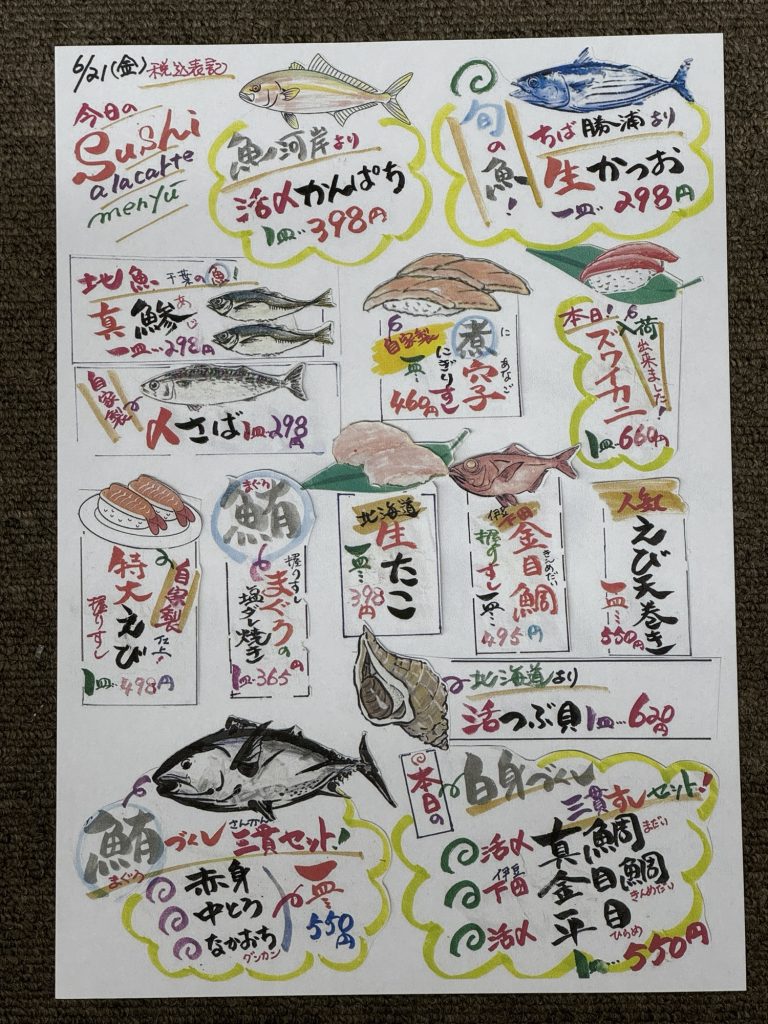 6/21(金) 税込表記
今日の
Sushi
a la carte
menyu
魚河岸より
活〆かんぱち
1皿…398円
旬の魚!
ちば勝浦より
生かつお
一皿…298円
地魚 千葉の魚!
真鯵 あじ
一皿…298円
自家製
〆さば 1皿…298円
自家製
煮穴子 に あなご
にぎりすし
一皿… 460円
本日!入荷出来ました!
ズワイカニ
1皿…660円
自家製仕上!
特大えび
握りすし
1皿…498円
まぐろ
鮪
握りすし
まぐろの
塩ダレ焼き
1皿…365円
北海道
生たこ
一皿…398円
伊豆下田
金目鯛 きんめだい
握りすし 一皿…495円
人気
えび天巻き
一皿…550円
北海道より
活つぶ貝 1皿…620円
鮪づくし 三貫セット! さんかん
まぐろ
赤身
中とろ
なかおち
グンカン
一皿…550円
本日の
白身づくし
三貫すしセット!
活〆 真鯛 まだい
伊豆下田 金目鯛 きんめだい
活〆 平目 ひらめ
1皿…550円